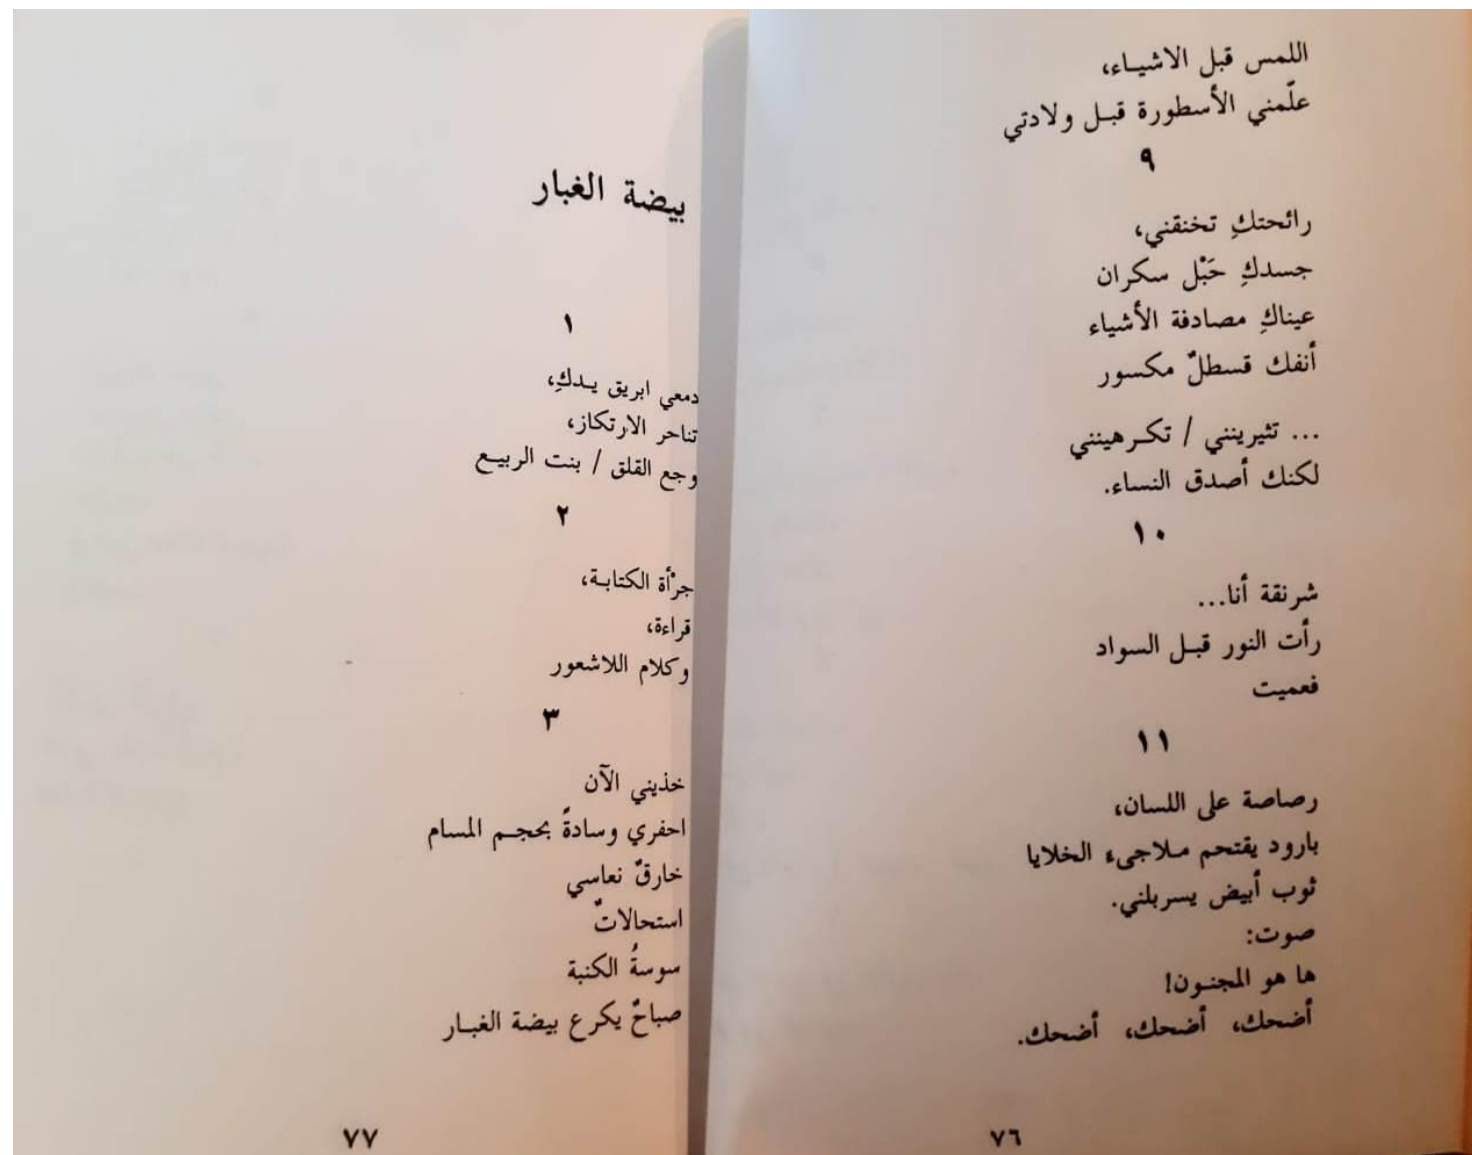 اللمس قبل الاشياء،
علّمني الأسطورة قبل ولادتي
٩
رائحتكِ تخنقني،
جسدكِ حَبْل سكران
عيناكِ مصادفة الأشياء
أنفك قسطلٌ مكسور
... تثيرينني / تكرهينني
لكنك أصدق النساء.
١٠
شرنقة أنا...
رأت النور قبل السواد
فعميت
١١
رصاصة على اللسان،
بارود يقتحم ملاجىء الخلايا
ثوب أبيض يسربلني.
صوت:
ها هو المجنون!
أضحك، أضحك، أضحك.
٧٦
بيضة الغبار
١
دمعي ابريق يدكِ،
تناحر الارتكاز،
وجع القلق / بنت الربيع
٢
جرْأة الكتابة،
قراءة،
وكلام اللاشعور
٣
خذيني الآن
احفري وسادةً بحجم المسام
خارقٌ نعاسي
استحالاتٌ
سوسةُ الكنبة
صباحٌ يكرع بيضة الغبار
٧٧